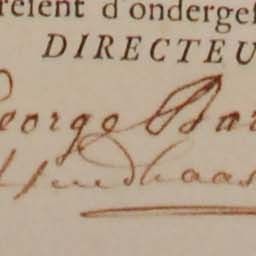 reſent d'ondergeſ
DIRECTEU
George Bar